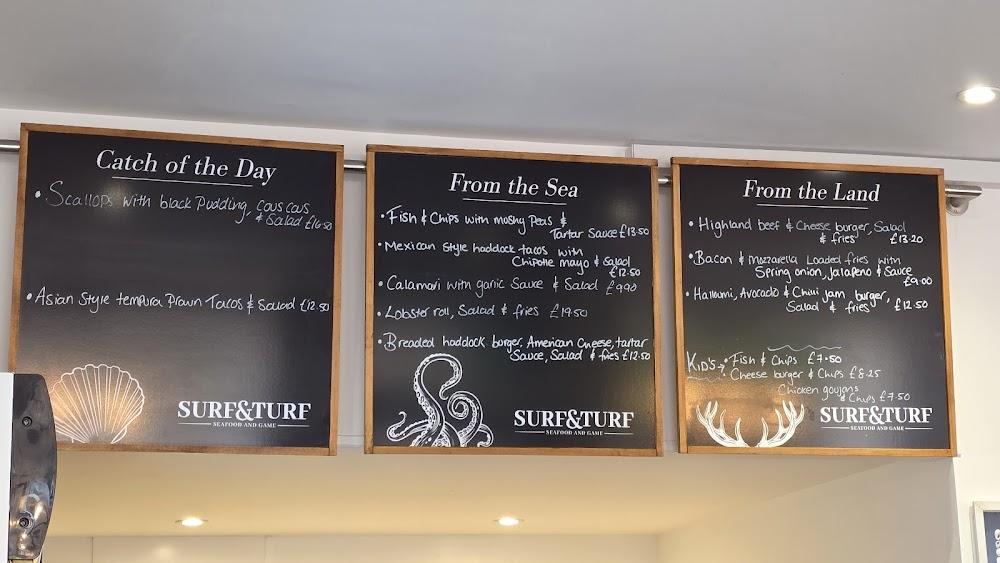 Catch of the Day
• Scallops with black Pudding, cous cous
& Salad £16.50
• Asian Style tempura Prawn Tacos & Salad £12.50
SURF&TURF
SEAFOOD AND GAME
From the Sea
• Fish & Chips with mushy Peas &
Tartar Sauce £13.50
• Mexican Style haddock tacos with
Chipotle mayo & Salad
£12.50
• Calamari with garlic Sauce & Salad £9.90
• Lobster roll, Salad & fries £19.50
• Breaded haddock burger, American Cheese, tartar
Sauce, Salad & fries £12.50
SURF&TURF
SEAFOOD AND GAME
From the Land
• Highland beef & Cheese burger, Salad
& fries £13.20
• Bacon & mozzarella Loaded fries with
Spring onion, Jalapeno & Sauce
£9.00
• Halloumi, Avocado & Chilli jam burger,
Salad & fries £12.50
KID'S → • Fish & Chips £7.50
• Cheese burger & Chips £8.25
Chicken goujons
& Chips £7.50
SURF&TURF
SEAFOOD AND GAME